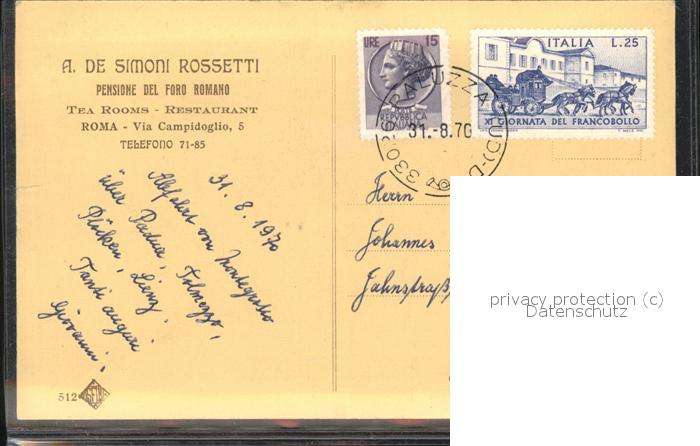 A. DE SIMONI ROSSETTI
PENSIONE DEL FORO ROMANO
TEA ROOMS - RESTAURANT
ROMA - Via Campidoglio, 5
TELEFONO 71-85
LIRE 15
REPVBBLICA
ITALIANA
ITALIA L.25
XI GIORNATA DEL FRANCOBOLLO
33026 PALUZZA (UD)
31.-8.70
31. 8. 1970
Abfahrt von Montegrotto
über Padua, Tolmezzo,
Plöcken, Lienz,
Tanti auguri
Giovanni.
Herrn
Johannes
Jahnstraß
privacy protection (c)
Datenschutz
512